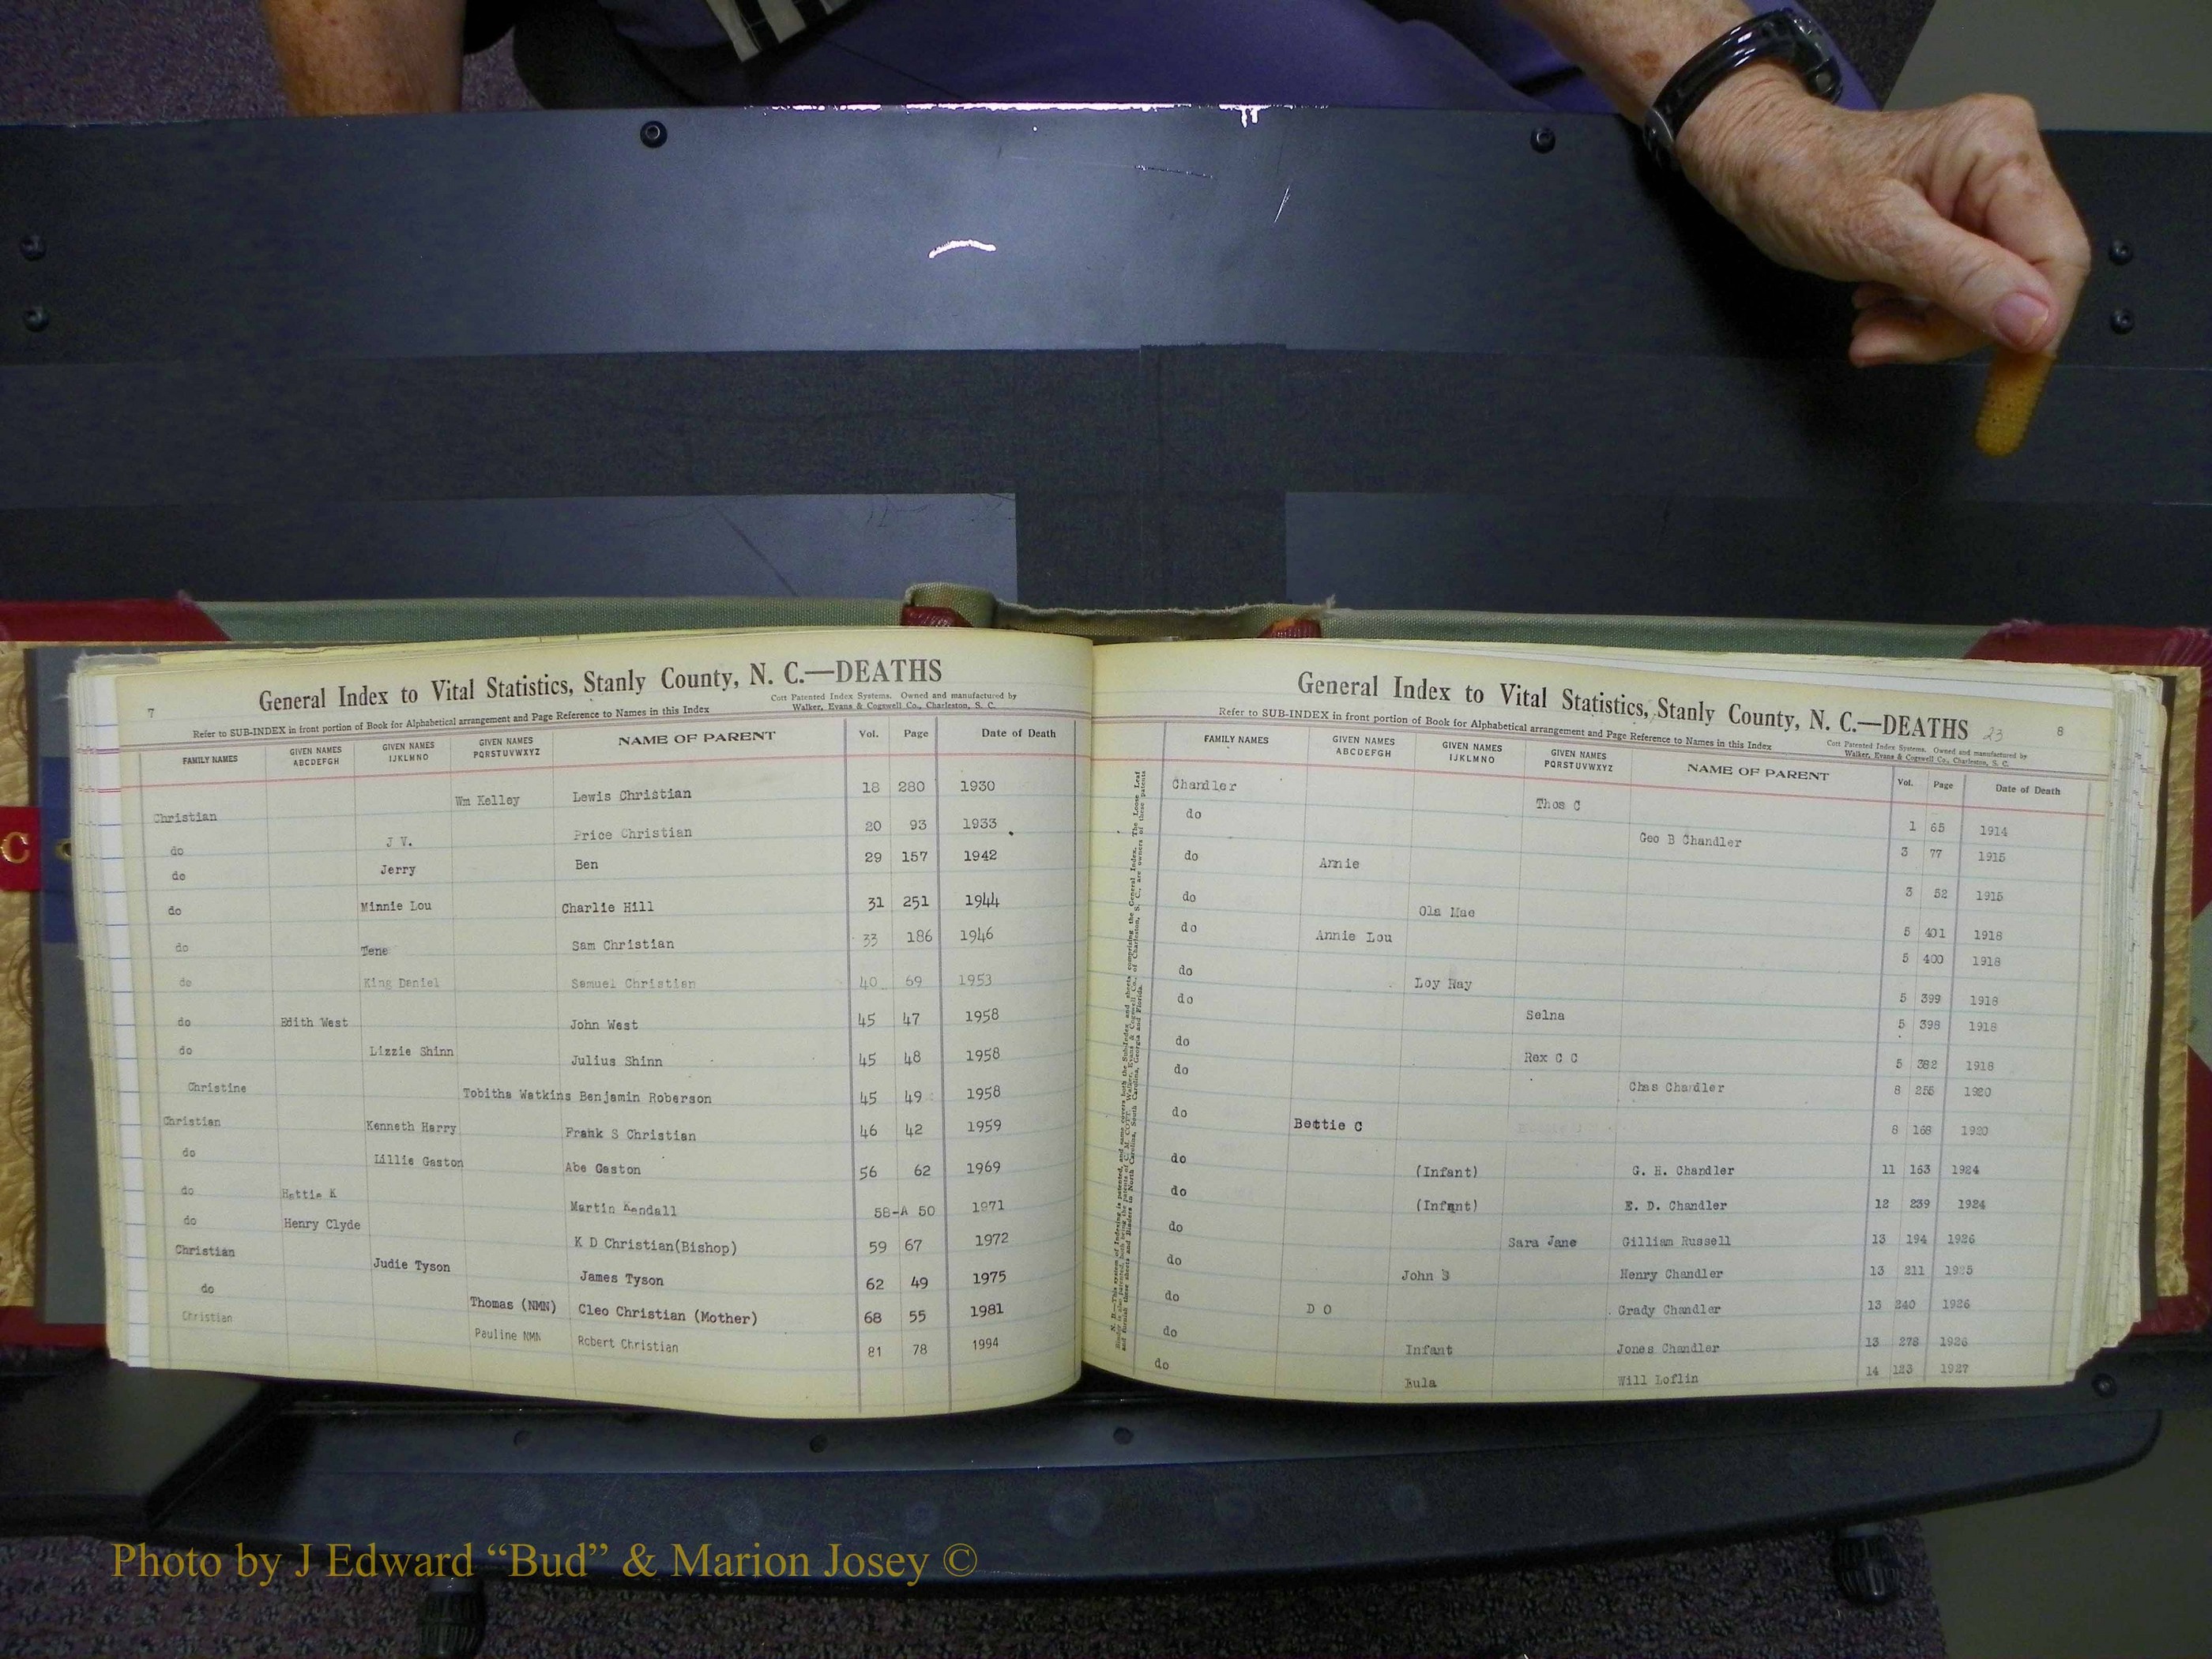 7
General Index to Vital Statistics, Stanly County, N. C.—DEATHS
Refer to SUB-INDEX in front portion of Book for Alphabetical arrangement and Page Reference to Names in this Index
Cott Patented Index Systems. Owned and manufactured by
Walker, Evans & Cogswell Co., Charleston, S. C.
FAMILY NAMES GIVEN NAMES ABCDEFGH GIVEN NAMES IJKLMNO GIVEN NAMES PQRSTUVWXYZ NAME OF PARENT Vol. Page Date of Death
Christian Wm Kelley Lewis Christian 18 280 1930
do J V. Price Christian 20 93 1933
do Jerry Ben 29 157 1942
do Minnie Lou Charlie Hill 31 251 1944
do Tene Sam Christian 33 186 1946
do King Daniel Samuel Christian 40 69 1953
do Edith West John West 45 47 1958
do Lizzie Shinn Julius Shinn 45 48 1958
Christine Tobitha Watkins Benjamin Roberson 45 49 1958
Christian Kenneth Harry Frank S Christian 46 42 1959
do Lillie Gaston Abe Gaston 56 62 1969
do Hattie K Martin Kendall 58-A 50 1971
do Henry Clyde K D Christian(Bishop) 59 67 1972
Christian Judie Tyson James Tyson 62 49 1975
do Thomas (NMN) Cleo Christian (Mother) 68 55 1981
Christian Pauline NMN Robert Christian 81 78 1994
C
General Index to Vital Statistics, Stanly County, N. C.—DEATHS 23
8
Refer to SUB-INDEX in front portion of Book for Alphabetical arrangement and Page Reference to Names in this Index
Cott Patented Index Systems. Owned and manufactured by
Walker, Evans & Cogswell Co., Charleston, S. C.
FAMILY NAMES GIVEN NAMES ABCDEFGH GIVEN NAMES IJKLMNO GIVEN NAMES PQRSTUVWXYZ NAME OF PARENT Vol. Page Date of Death
Chandler Thos C 1 65 1914
do Geo B Chandler 3 77 1915
do Annie 3 52 1915
do Ola Mae 5 401 1918
do Annie Lou 5 400 1918
do Loy Ray 5 399 1918
do Selna 5 398 1918
do Rex C C 5 382 1918
do Chas Chandler 8 255 1920
do Bettie C 8 168 1920
do (Infant) G. H. Chandler 11 163 1924
do (Infant) E. D. Chandler 12 239 1924
do Sara Jane Gilliam Russell 13 194 1926
do John S Henry Chandler 13 211 1925
do D O Grady Chandler 13 240 1926
do Infant Jones Chandler 13 278 1926
do Eula Will Loflin 14 123 1927
Photo by J Edward “Bud” & Marion Josey ©